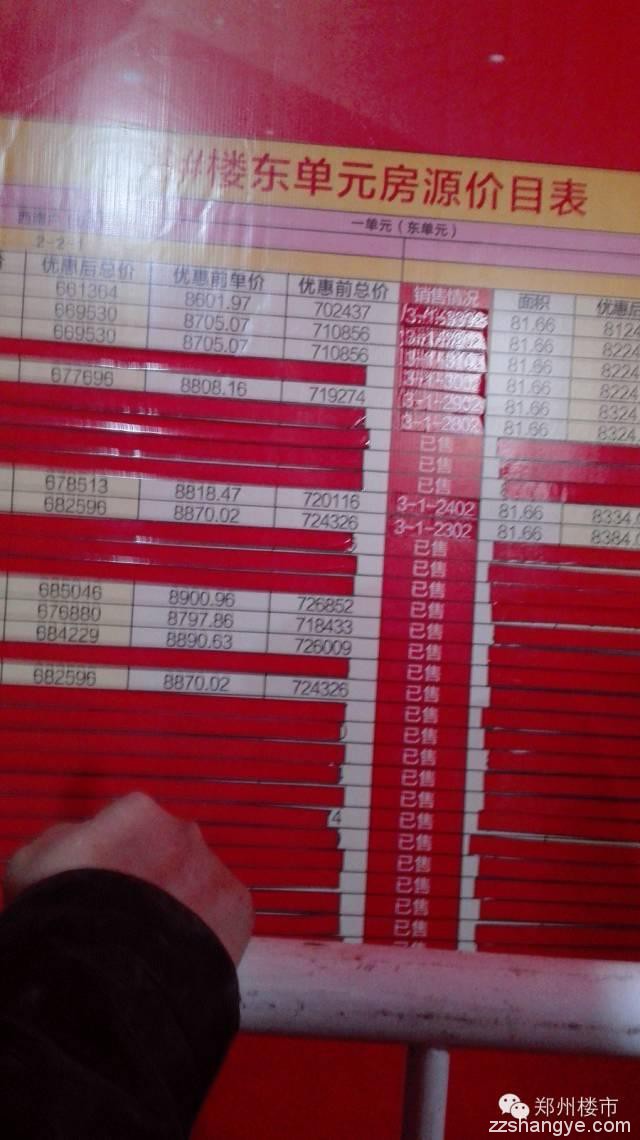 #楼东单元房源价目表
一单元（东单元）
2-2-1
优惠后总价 优惠前单价 优惠前总价 销售情况 面积 优惠后
661364 8601.97 702437 81.66
669530 8705.07 710856 81.66
669530 8705.07 710856 81.66
81.66
677696 8808.16 719274 3-1-2902 81.66
3-1-2802 81.66
已售
已售
已售
678513 8818.47 720116 3-1-2402 81.66 8334.0
682596 8870.02 724326 3-1-2302 81.66 8384.0
已售
已售
已售
685046 8900.96 726852 已售
676880 8797.86 718433 已售
684229 8890.63 726009 已售
已售
682596 8870.02 724326 已售
已售
已售
已售
已售
已售
4 已售
已售
已售
已售
已售
已售
郑州楼市
zzshangye.com